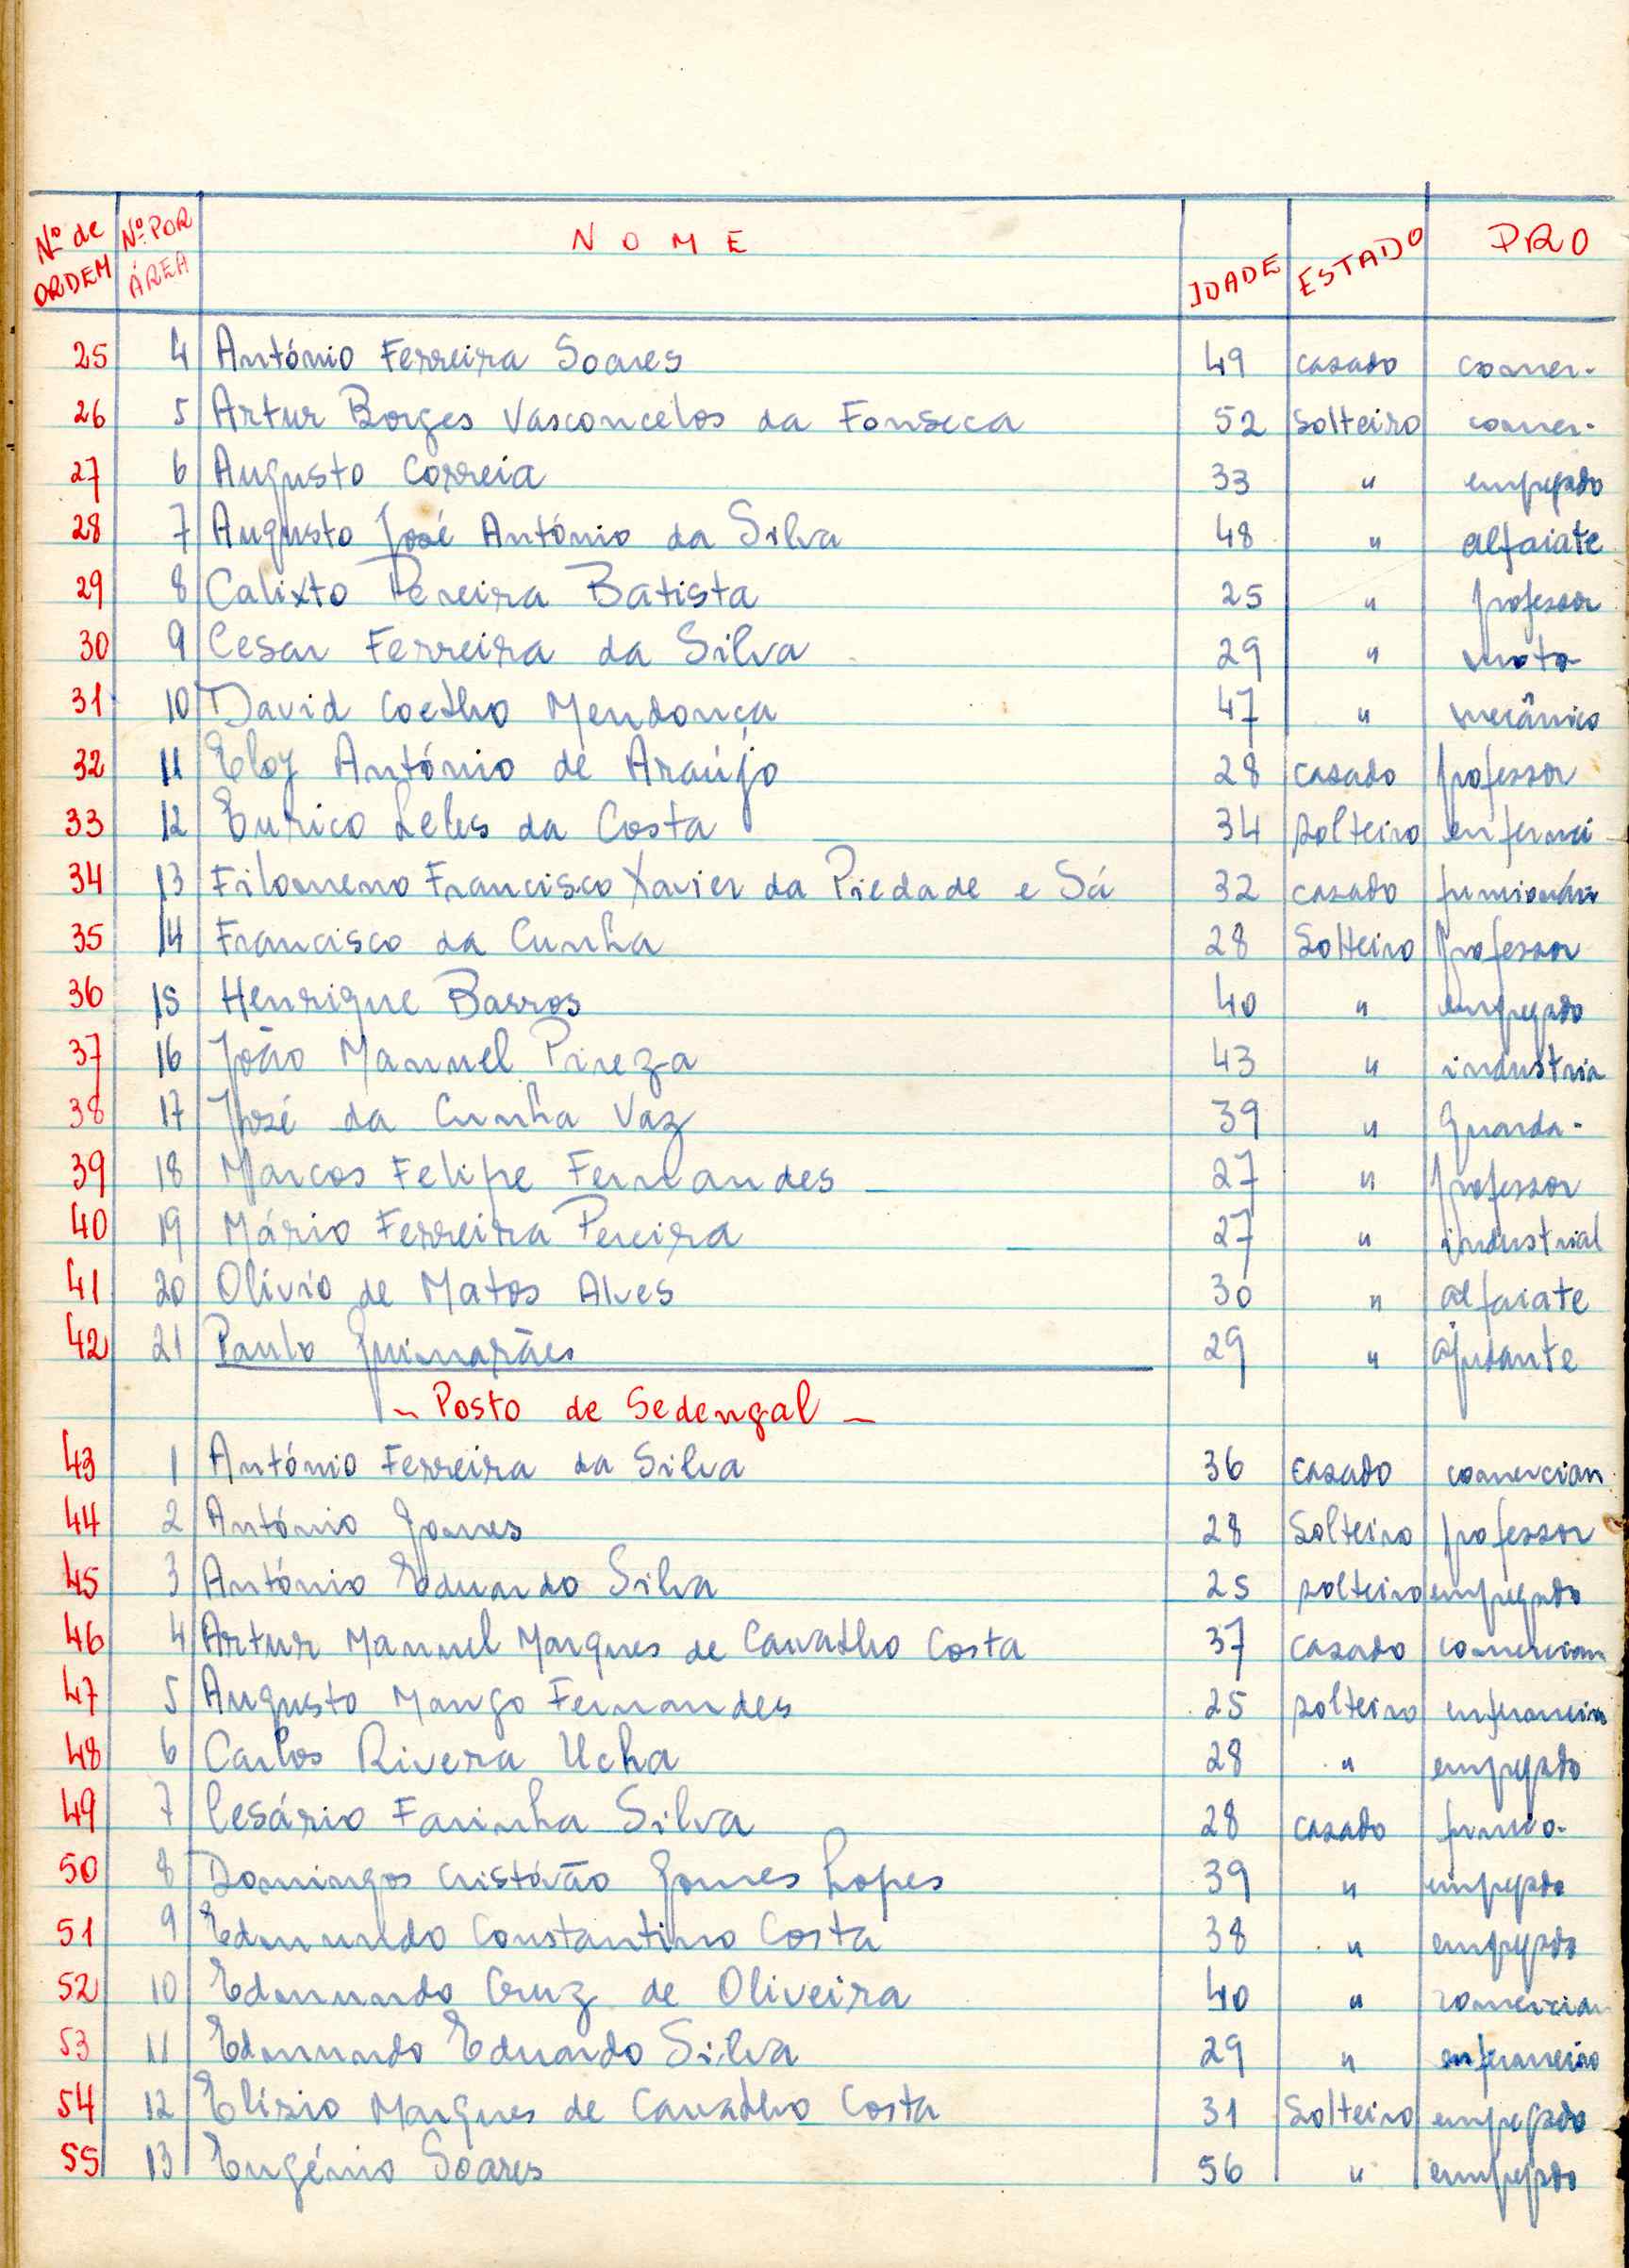 Nº de ORDEM Nº POR ÁREA NOME IDADE ESTADO PRO
25 4 António Ferreira Soares 49 casado comer-
26 5 Artur Borges Vasconcelos da Fonseca 52 solteiro comer-
27 6 Augusto Correia 33 " empregado
28 7 Augusto José António da Silva 48 " alfaiate
29 8 Calixto Pereira Batista 25 " professor
30 9 Cesar Ferreira da Silva 29 " moto
31 10 David Coelho Mendonça 47 " mecânico
32 11 Eloy António de Araújo 28 casado professor
33 12 Eurico Leles da Costa 34 solteiro enfermei
34 13 Filomeno Francisco Xavier da Piedade e Sá 32 casado funcionário
35 14 Francisco da Cunha 28 Solteiro Professor
36 15 Henrique Barros 40 " empregado
37 16 João Manuel Pireza 43 " industria
38 17 José da Cunha Vaz 39 " Guarda-
39 18 Marcos Felipe Fernandes 27 " professor
40 19 Mário Ferreira Pereira 27 " industrial
41 20 Olívio de Matos Alves 30 " alfaiate
42 21 Paulo Guimarães 29 " ajudante
- Posto de Sedengal -
43 1 António Ferreira da Silva 36 casado comercian
44 2 António Gomes 28 Solteiro professor
45 3 António Eduardo Silva 25 solteiro empregado
46 4 Artur Manuel Marques de Carvalho Costa 37 casado comercian
47 5 Augusto Mango Fernandes 25 solteiro enfermeiro
48 6 Carlos Rivera Ucha 28 " empregado
49 7 Cesário Farinha Silva 28 casado funcio-
50 8 Domingos Cristóvão Gomes Lopes 39 " empregado
51 9 Edmundo Constantino Costa 38 " empregado
52 10 Edmundo Cruz de Oliveira 40 " comercian
53 11 Edmundo Eduardo Silva 29 " enfermeiro
54 12 Elísio Marques de Carvalho Costa 31 Solteiro empregado
55 13 Eugénio Soares 56 " empregado